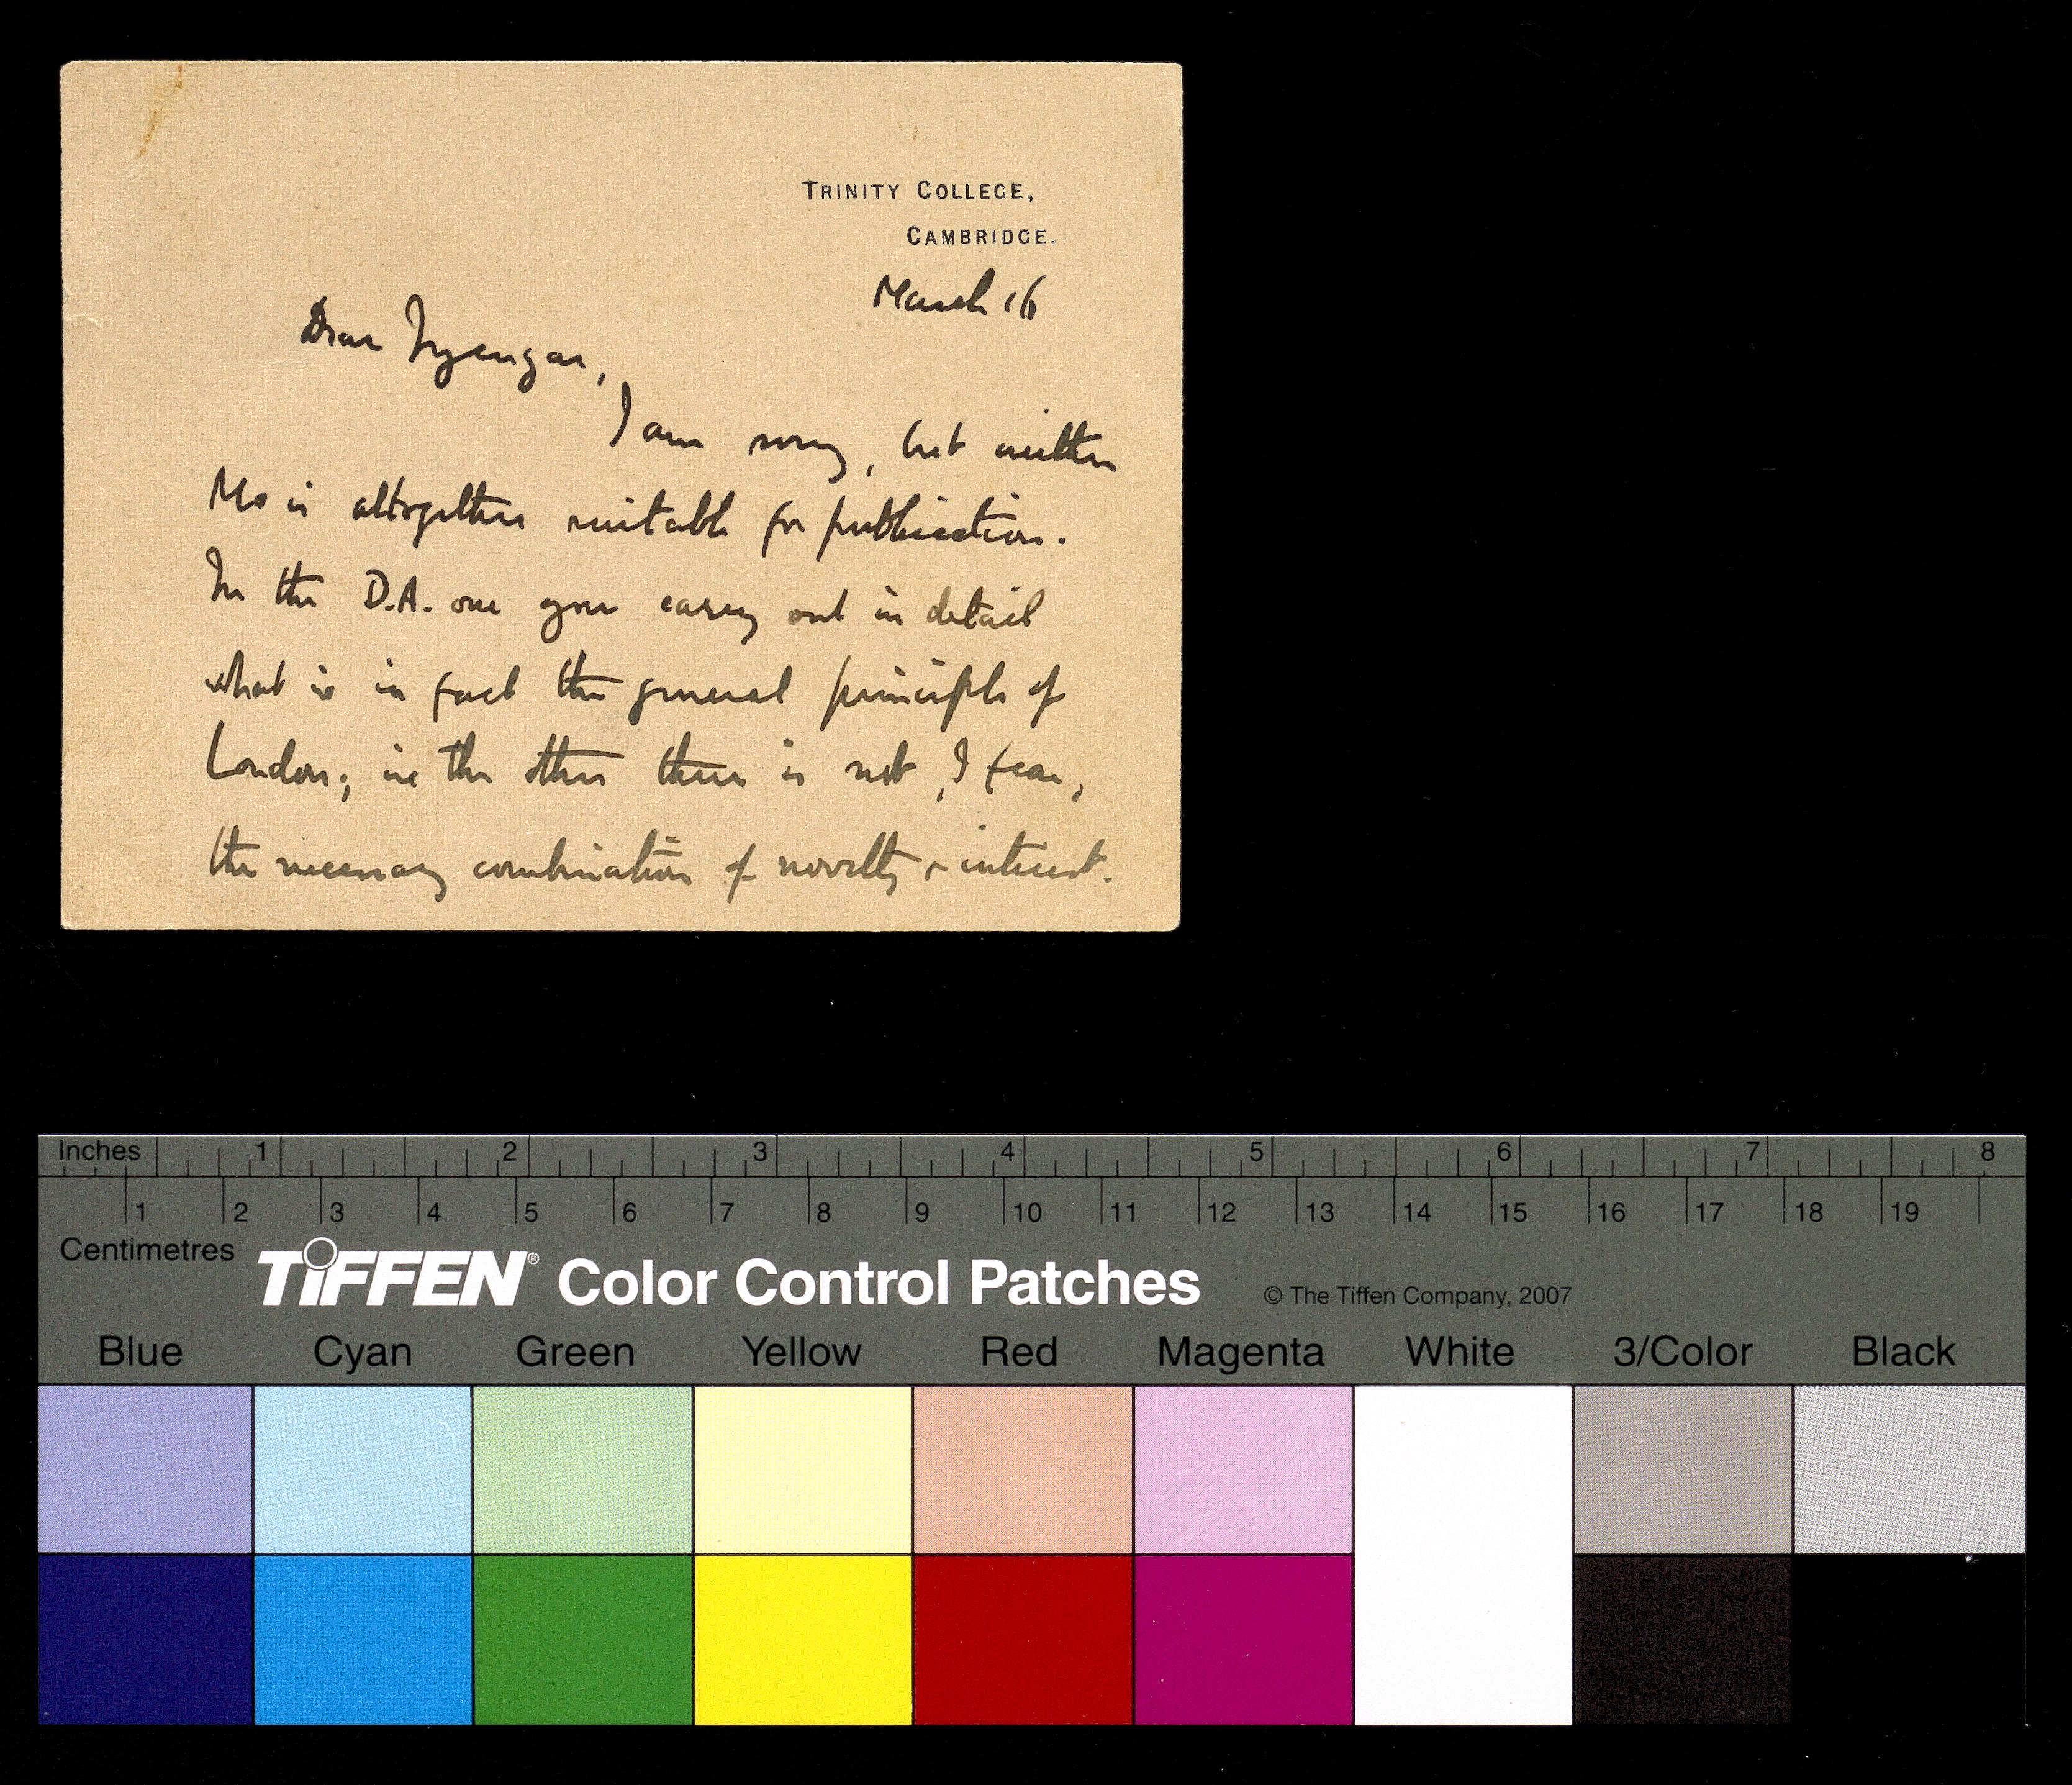 TRINITY COLLEGE,
CAMBRIDGE.
March 16
Dear Iyengar,
I am sorry, but neither
Ms is altogether suitable for publication.
In the D.A. one you carry out in detail
what is in fact the general principle of
London; in the other there is not, I fear,
the necessary combination of novelty & interest.
Inches 1 2 3 4 5 6 7 8
1 2 3 4 5 6 7 8 9 10 11 12 13 14 15 16 17 18 19
Centimetres
TIFFEN® Color Control Patches © The Tiffen Company, 2007
Blue Cyan Green Yellow Red Magenta White 3/Color Black